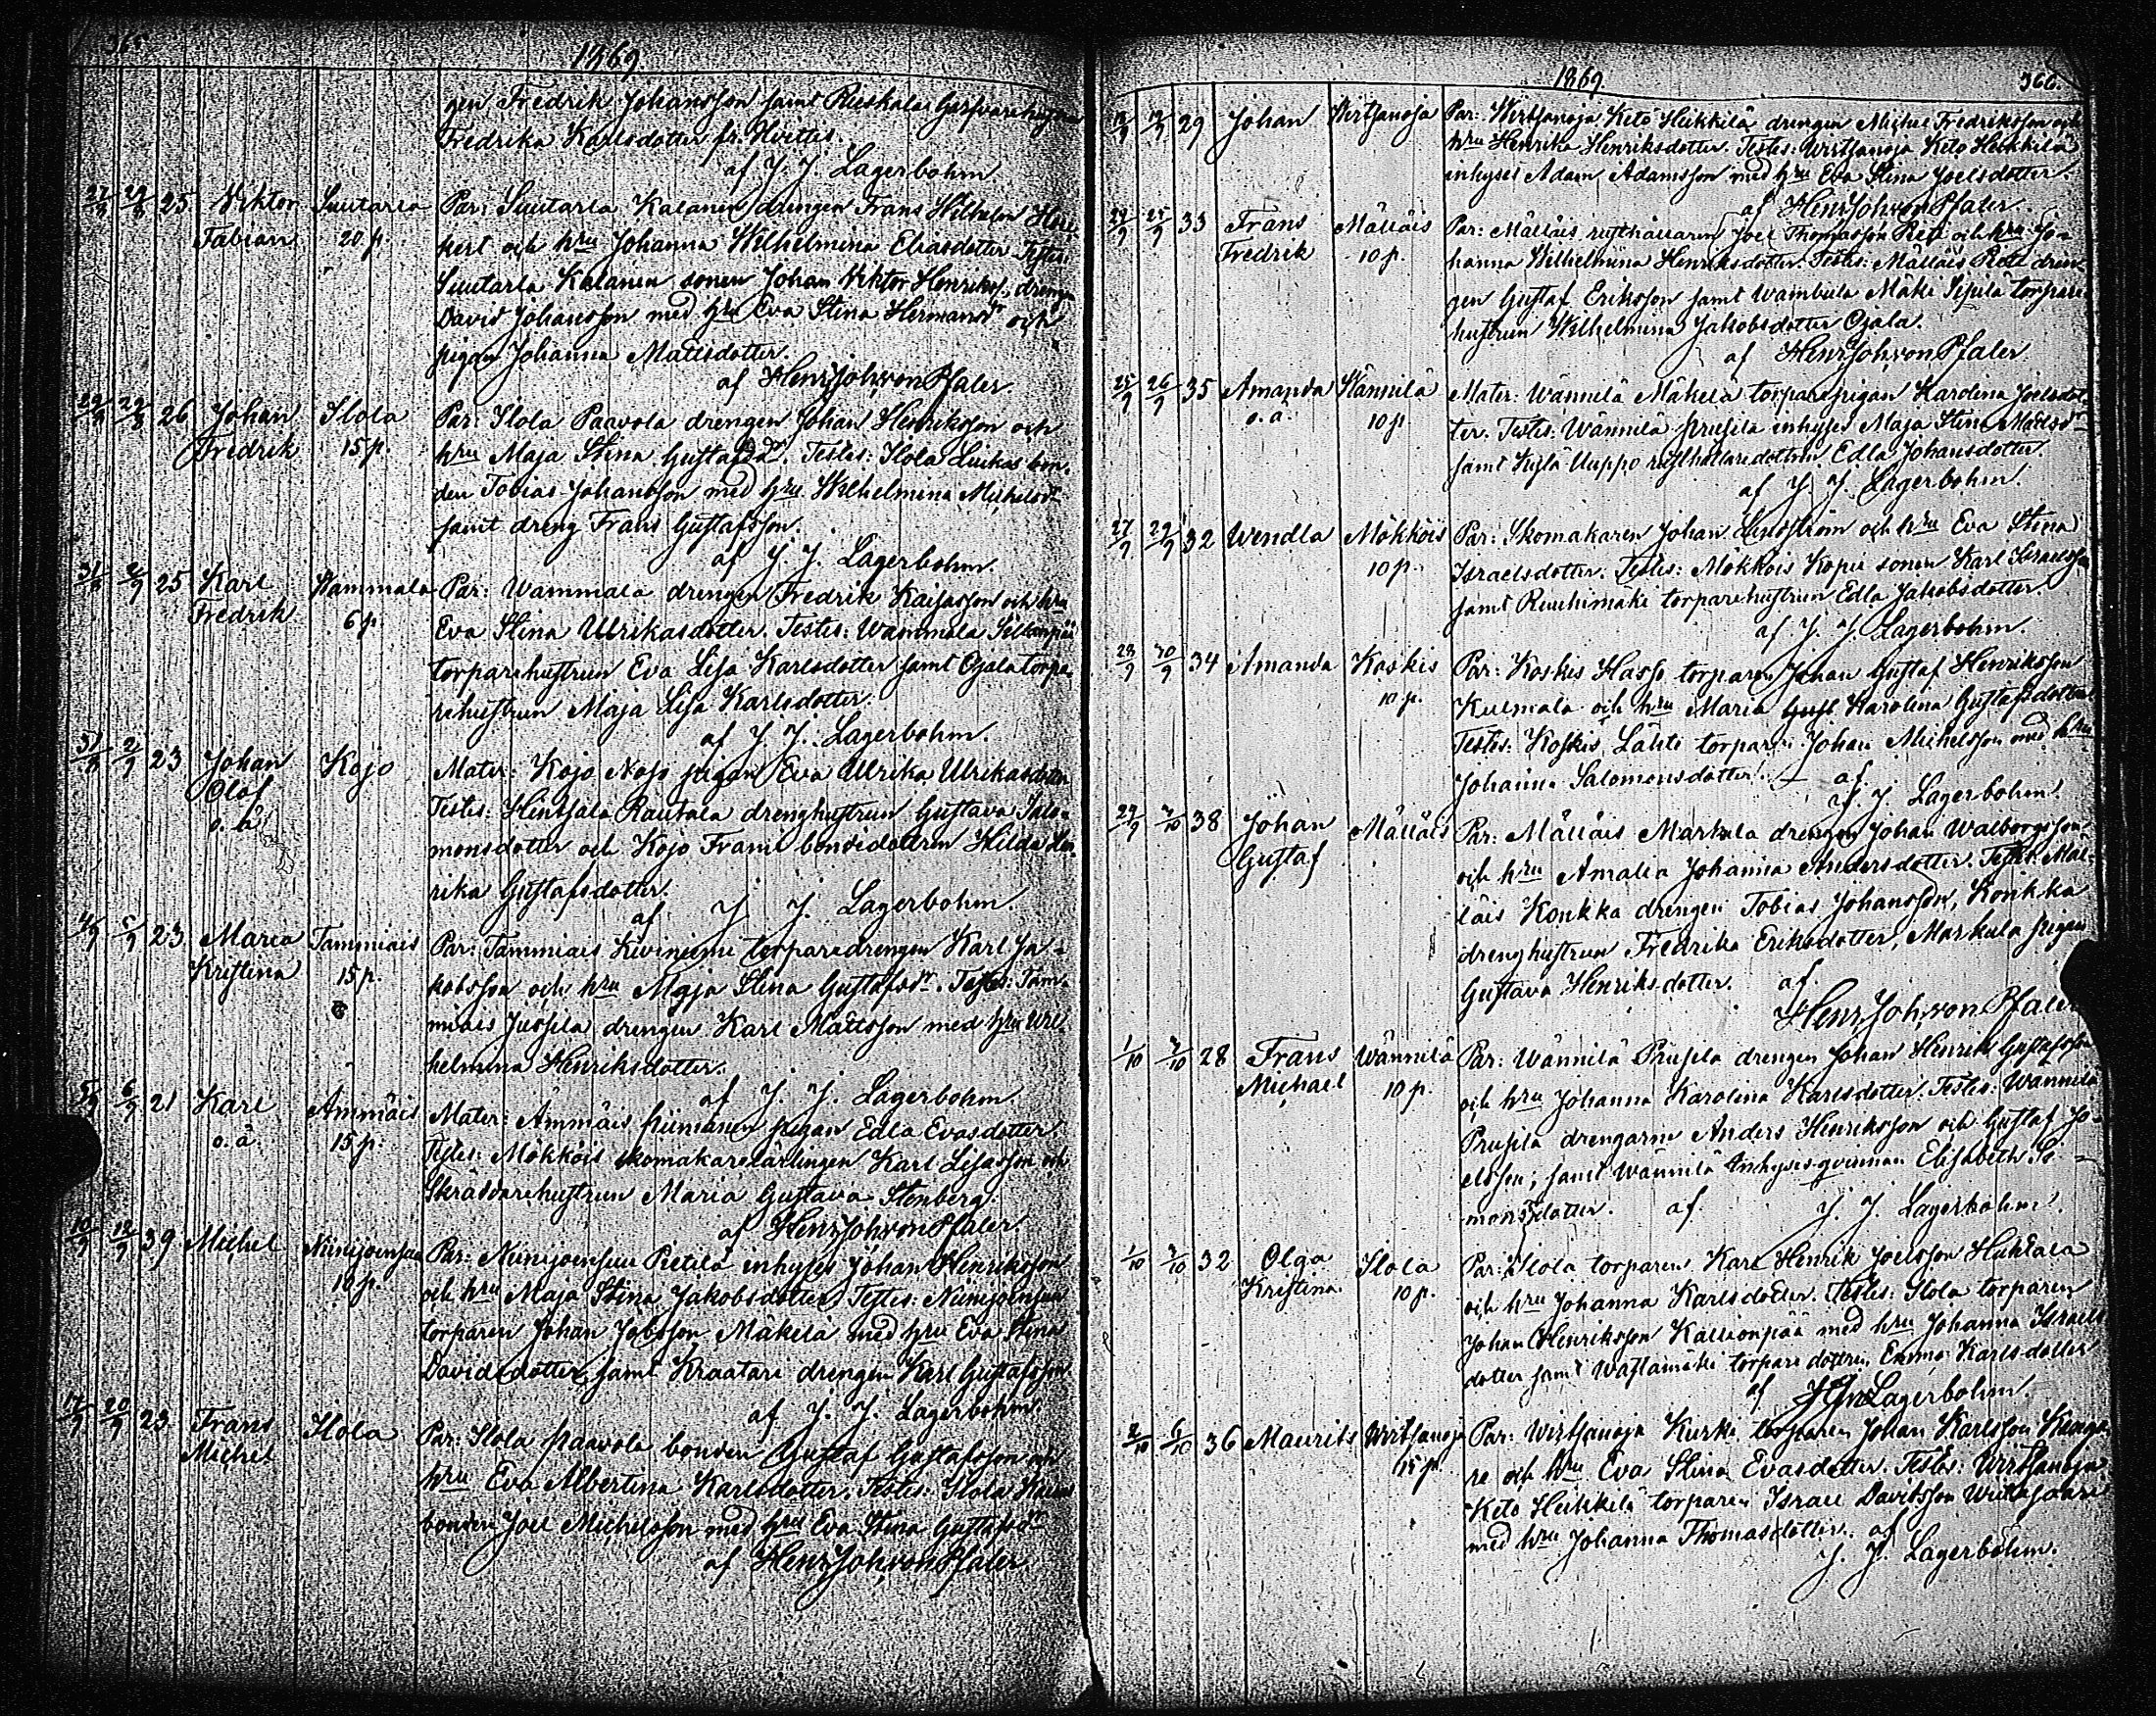 365.
1869.
gen Fredrik Johansson samt Ruskala
Fredrika Karlsdotter fr. Hvittis.
af J. J. Lagerbohm
27/8 29/8 25 Viktor Suutarla Par: Suutarla Kalanen drengen Frans Wilhelm
Fabian 20 p. och hru Johanna Wilhelmina Eliasdotter. Testes:
Suutarla Kalanen sonen Johan Viktor Henrikss. drengen
David Johansson med hru Eva Stina Hermansdr och
pigan Johanna Mattsdotter.
af Henr. Joh. von Pfaler
29/8 26 Johan Ilola Par: Ilola Paavola drengen Johan Henriksson och
Fredrik 15 p. hru Maja Stina Gustafsdr. Testes: Ilola Luukas bon-
den Tobias Johansson med hru Wilhelmina Michelsdr
samt dreng Frans Gustafsson.
af J. J. Lagerbohm.
31/8 2/9 25 Karl Wammala Par: Wammala drengen Fredrik Kaisasson och hru
Fredrik 6 p. Eva Stina Ulrikasdotter. Testes: Wammala Sillanpää
torparehustrun Eva Lisa Karlsdotter samt Ojala torpa-
rehustrun Maja Lisa Karlsdotter.
af J. J. Lagerbohm.
31/8 2/9 23 Johan Kojo Mater: Kojo pigan Eva Ulrika Ulrikasdotter
Olof Testes: Hintsala Rautala drenghustrun Gustava Salo-
o. ä. monsdotter och Kojo Frami bondedottren Hilda Hen-
rika Gustafsdotter.
af J. J. Lagerbohm.
4/9 5/9 23 Maria Tammiais Par: Tammiais Kiviniemi torparedrengen Karl Ja-
Kristina 15 p. kobsson och hru Maja Stina Gustafsdr. Testes: Tam-
miais Jussila drengen Karl Mattsson med hru Wil-
helmina Henriksdotter.
af J. J. Lagerbohm
5/9 6/9 21 Karl Ammäis Mater: Ammäis piimänen pigan Edla Evasdotter
o. ä. 15 p. Testes: Mökköis skomakarelärlingen Karl Lisasson och
Skräddarehustrun Maria Gustava Stenberg.
af Henr. Joh. von Pfaler
10/9 12/9 39 Michel Niinijoensuu Par: Niinijoensuu Pietilä inhyses Johan Henriksson
18 p. och hru Maja Stina Jakobsdotter. Testes: Niinijoensuu
torparen Johan Jobsson Mäkelä med hru Eva Stina
Davidsdotter, samt Kraatari drengen Karl Gustafsson.
af J. J. Lagerbohm.
17/9 20/9 23 Frans Ilola Par: Ilola paavola bonden Gustaf Gustafsson och
Michel hru Eva Albertina Karlsdotter. Testes: Ilola
bonden Joel Michelsson med hru Eva Stina Gustafsdr
af Henr. Joh. von Pfaler
1869
366.
29 Johan Wirtsanoja Par: Wirtsanoja Keto Heikkilä drengen Michel Fredriksson och
hru Henrika Henriksdotter. Testes: Wirtsanoja Keto Heikkilä
inhyses Adam Adamsson med hru Eva Stina Joelsdotter.
af Henr. Joh. von Pfaler.
24/9 25/9 33 Frans Mälläis Par: Mälläis rusthållaren Joel Thomasson och hru Jo-
Fredrik 10 p. hanna Wilhelmina Henriksdotter. Testes: Mälläis dren-
gen Gustaf Eriksson samt Wambula Mäki Sipilä torpare
hustrun Wilhelmina Jakobsdotter Ojala.
af Henr. Joh. von Pfaler
25/9 26/9 35 Amanda Wännilä Mater: Wännilä Mäkelä torparepigan Karolina Joelsdot-
o. ä. 10 p. ter. Testes: Wännilä prusila inhyses Maja Stina Mattsdr
samt Uuppo rusthållaredottren Edla Johansdotter.
af J. J. Lagerbohm.
27/9 29/9 32 Wendla Mökköis Par: Skomakaren Johan Lindström och hru Eva Stina
10 p. Israelsdotter. Testes: Mökköis Kopü sonen Karl Israelsson
samt Ruuhimäki torparehustrun Edla Jakobsdotter.
af J. J. Lagerbohm.
28/9 30/9 34 Amanda Koskis Par: Koskis Hassi torparen Johan Gustaf Henriksson
10 p. Kulmala och hru Maria Karolina Gustafsdotter
Testes: Koskis Lähti torparen Johan Michelsson med hru
Johanna Salomonsdotter. af
J. J. Lagerbohm.
29/9 3/10 38 Johan Mälläis Par: Mälläis Markula drengen Johan Walborgsson
Gustaf och hru Amalia Johanna Andersdotter. Testes: Mäl-
läis Konkka drengen Tobias Johansson, Konkka
drenghustrun Fredrika Eriksdotter, Markula pigan
Gustava Henriksdotter. af
Henr. Joh. von Pfaler
1/10 3/10 28 Frans Wännilä Par: Wännilä Prusila drengen Johan Henrik Gustafsson
Michael 10 p. och hru Johanna Karolina Karlsdotter. Testes: Wännilä
Prusila drengarne Anders Henriksson och Gustaf Jo-
elsson; samt Wännilä Inhyses-qvinnan Elisabeth Si-
monsdotter. af J. J. Lagerbohm.
1/10 3/10 32 Olga Ilola Par: Ilola torparen Karl Henrik Joelsson Huhtala
Kristina 10 p. och hru Johanna Karlsdotter. Testes: Ilola torparen
Johan Henriksson Kallionpää med hru Johanna Israels
dotter samt Wastamäki torpare dottren Emma Karlsdotter
af J. J. Lagerbohm.
2/10 6/10 36 Maurits Wirtsanoja Par: Wirtsanoja Kurki torparen Johan Karlsson Kanga-
15 p. re och hru Eva Stina Evasdotter. Testes: Wirtsanoja
Keto Heikkilä torparen Israel Davidsson
med hru Johanna Thomasdotter. af
J. J. Lagerbohm.